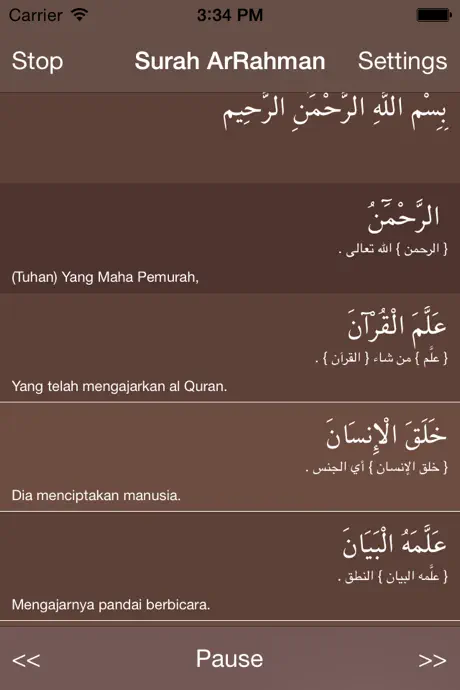 Carrier 3:34 PM
Stop Surah ArRahman Settings
بِسْمِ اللَّهِ الرَّحْمَنِ الرَّحِيمِ
الرَّحْمَٰنُ
{ الرحمن } الله تعالى .
(Tuhan) Yang Maha Pemurah,
عَلَّمَ الْقُرْآنَ
{ علَّم } من شاء { القرآن } .
Yang telah mengajarkan al Quran.
خَلَقَ الْإِنسَانَ
{ خلق الإنسان } أي الجنس .
Dia menciptakan manusia.
عَلَّمَهُ الْبَيَانَ
{ علَّمه البيان } النطق .
Mengajarnya pandai berbicara.
<< Pause >>